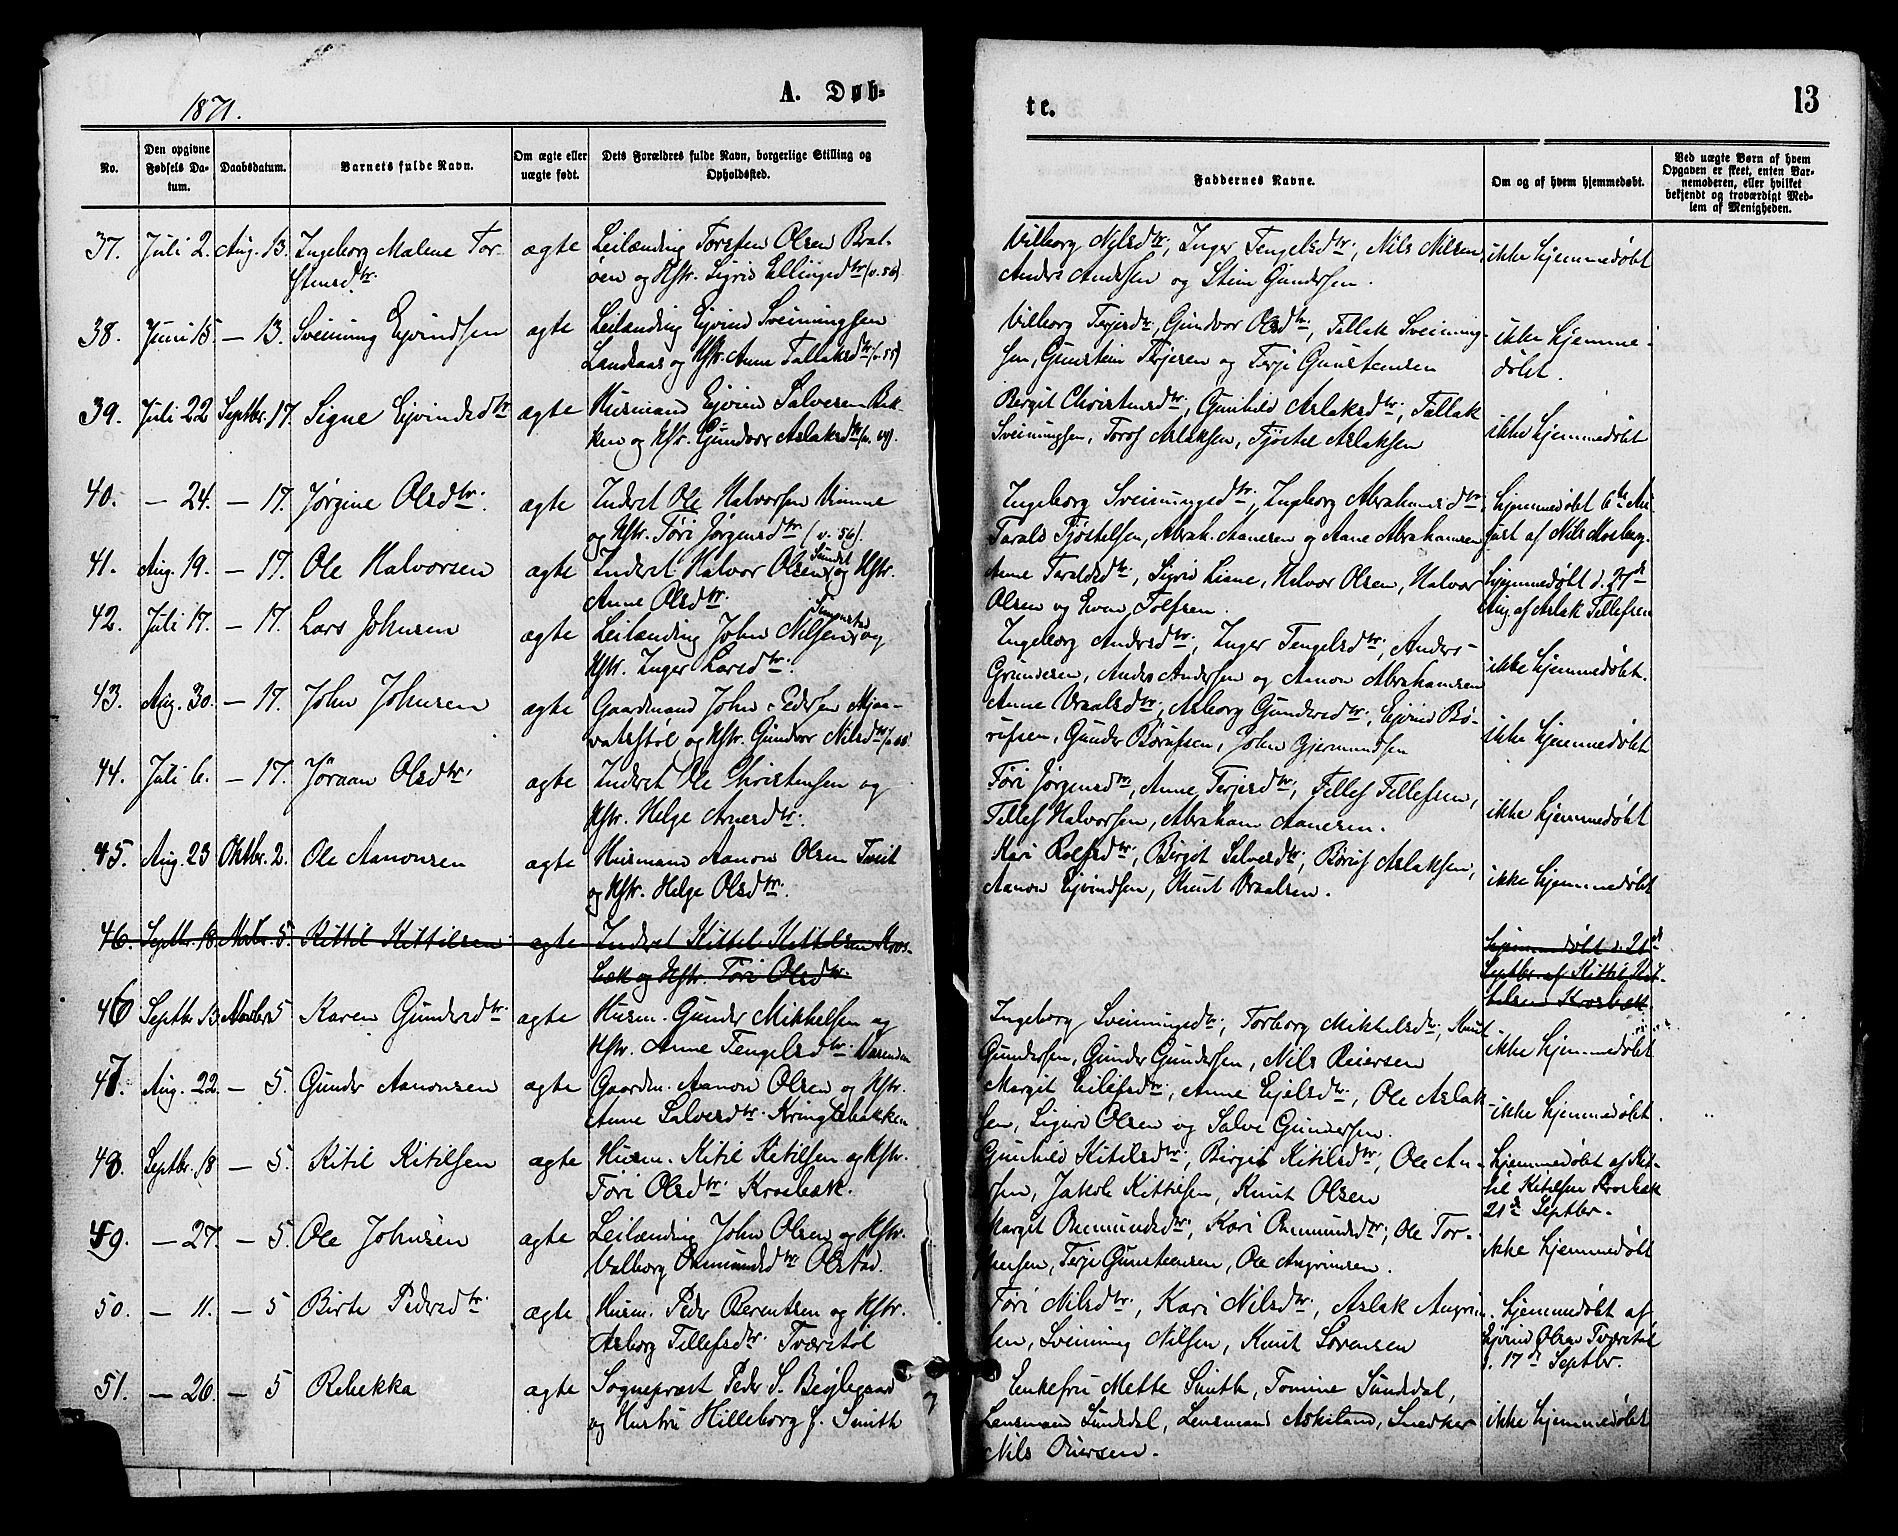 1871.
A. Døb-
te.
13
No.
Den opgivne Fødsels Da-tum.
Daabsdatum.
Barnets fulde Navn.
Om ægte eller uægte født.
Dets Forældres fulde Navn, borgerlige Stilling og Opholdssted.
Faddernes Navne.
Om og af hvem hjemmedøbt.
Ved uægte Børn af hvem Opgaven er skeet, enten Bar-nemoderen, eller hvilket bekjendt og troværdigt Med-lem af Menigheden.
37. Juli 2. Aug. 13. Ingeborg Malene Tor- ægte Leilænding Torsten Olsen
stensdtr. og Hstr. Sigrid Ellingsdtr (v. 56).
Vilborg Nilsdtr., Inger Tengelsdtr., Nils Nilsen, ikke hjemmedøbt
Anders Andersen og Stein Gundersen.
38. Juni 15. — 13. Sveinung Ejvindsen ægte Leilænding Ejvind Sveinungsen
Landaas og Hstr. Anne Tallaksdtr (v. 55)
Vilborg Terjesdtr., Gundvor Olsdtr., Tallak Sveinung- ikke hjemme-
sen, Gunstein Terjesen og Terje Gunsteinsen døbt.
39. Juli 22 Septbr. 17. Signe Ejvindsdtr ægte Husmand Ejvind Salvesen Bek-
ken og Hstr. Gundvor Aslaksdtr
Birgit Christensdtr., Gunhild Aslaksdtr., Tallak
Sveinungsen, Torof Aslaksen, Tjøstel Aslaksen ikke hjemmedøbt
40. — 24. — 17. Jørgine Olsdtr. ægte Inderst Ole Halvorsen Vimme
og Hstr. Tøri Jørgensdtr (v. 56).
Ingeborg Sveinungsdtr., Ingeborg Abrahamsdtr., hjemmedøbt 6te Au-
Tarald Tjøstelsen, Abrah. Aanesen og Aane Abrahamsen gust af Nils Mosberg.
41. Aug. 19. — 17. Ole Halvorsen ægte Inderst Halvor Olsen Sundet og Hstr.
Anne Olsdtr.
Anne Taraldsdtr., Sigrid Lisne, Halvor Olsen, Halvor hjemmedøbt d. 27de
Olsen og Even Tolfsen. Aug. af Aslak Tellefsen
42. Juli 17. — 17. Lars Johnsen ægte Leilænding John Nilsen og
Hstr. Inger Larsdtr.
Ingeborg Andersdtr., Inger Tengelsdtr., Anders
Gundersen, Anders Andersen og Aanon Abrahamsen ikke hjemmedøbt.
43. Aug. 30. — 17. John Johnsen ægte Gaardmand John Pedersen Mjaa-
vatsstøl og Hstr. Gundvor Nilsdtr
Anne Vraalsdtr., Asborg Gundersdtr., Ejvind Bø-
rufsen, Gunder Børufsen, John Gjermundsen ikke hjemmedøbt
44. Juli 6. — 17. Jøraan Olsdtr. ægte Inderst Ole Christensen og
Hstr. Helge Arnesdtr.
Tøri Jørgensdtr., Anne Terjesdtr., Tellef Tellefsen,
Tellef Halvorsen, Abraham Aanesen. ikke hjemmedøbt
45. Aug. 23 Oktbr. 2. Ole Aanonsen ægte Husmand Aanon Olsen Tveit
og Hstr. Helge Olsdtr.
Kari Rolfsdtr., Birgit Salvesdtr., Børuf Aslaksen,
Aanon Ejvindsen, Knut Vraalsen. ikke hjemmedøbt
46. Septbr. 18. Novbr. 5. Kittil Kittilsen ægte Inderst Kittil Kittilsen Kros-
bæk og Hstr. Tøri Olsdtr.
hjemmedøbt d. 21de
Septbr. af Kittil Kit-
telsen Krosbæk
46 Septbr 13. Novbr. 5 Karen Gundersdtr. ægte Husm. Gunder Mikkelsen og
Hstr. Anne Tengelsdtr.
Ingeborg Sveinungsdtr., Torborg Mikkelsdtr., Knut
Gundersen, Gunder Gundersen, Nils Reiersen ikke hjemmedøbt
47. Aug. 22. — 5. Gunder Aanonsen ægte Gaardm. Aanon Olsen og Hstr.
Anne Salvesdtr. Kringlebakken
Margit Eilefsdtr., Anne Ejelsdtr., Ole Aslak-
sen, Sigurd Olsen og Salve Gundersen. ikke hjemmedøbt.
48. Septbr. 18 — 5. Kitil Kitilsen ægte Husm. Kitil Kitilsen og Hstr.
Tøri Olsdtr. Krosbæk.
Gunhild Kitilsdtr., Birgit Kitilsdtr., Ole An- hjemmedøbt af Kit-
sen, Jakob Kittilsen, Knut Olsen til Kitilsen Krosbæk
21de Septbr.
49. — 27. — 5. Ole Johnsen ægte Leilænding John Olsen og Hstr.
Valborg Osmundsdtr Olstad.
Margit Osmundsdtr., Kari Osmundsdtr., Ole Tor-
Terje Gunsteinsen, Ole Asgrimsen. ikke hjemmedøbt
50. — 11. — 5 Birte Pedersdtr. ægte Husm. Peder Berentsen og Hstr.
Asborg Tellefsdtr. Tværstøl
Tøri Nilsdtr., Kari Nilsdtr., Aslak Asgrim- hjemmedøbt af
sen, Sveinung Nilsen, Knut Sørensen Ejvind Olsen Tværstøl
d. 17de Septbr.
51. — 26. — 5 Rebekka ægte Sognepræst Peder S. Bøjlegaard
og Hustru Hilleborg f. Smith
Enkefru Mette Smith, Tomine Sundsdal,
Lensmand Sundsdal, Lensmand Askeland, Snedker ikke hjemmedøbt
Nils Oversen.